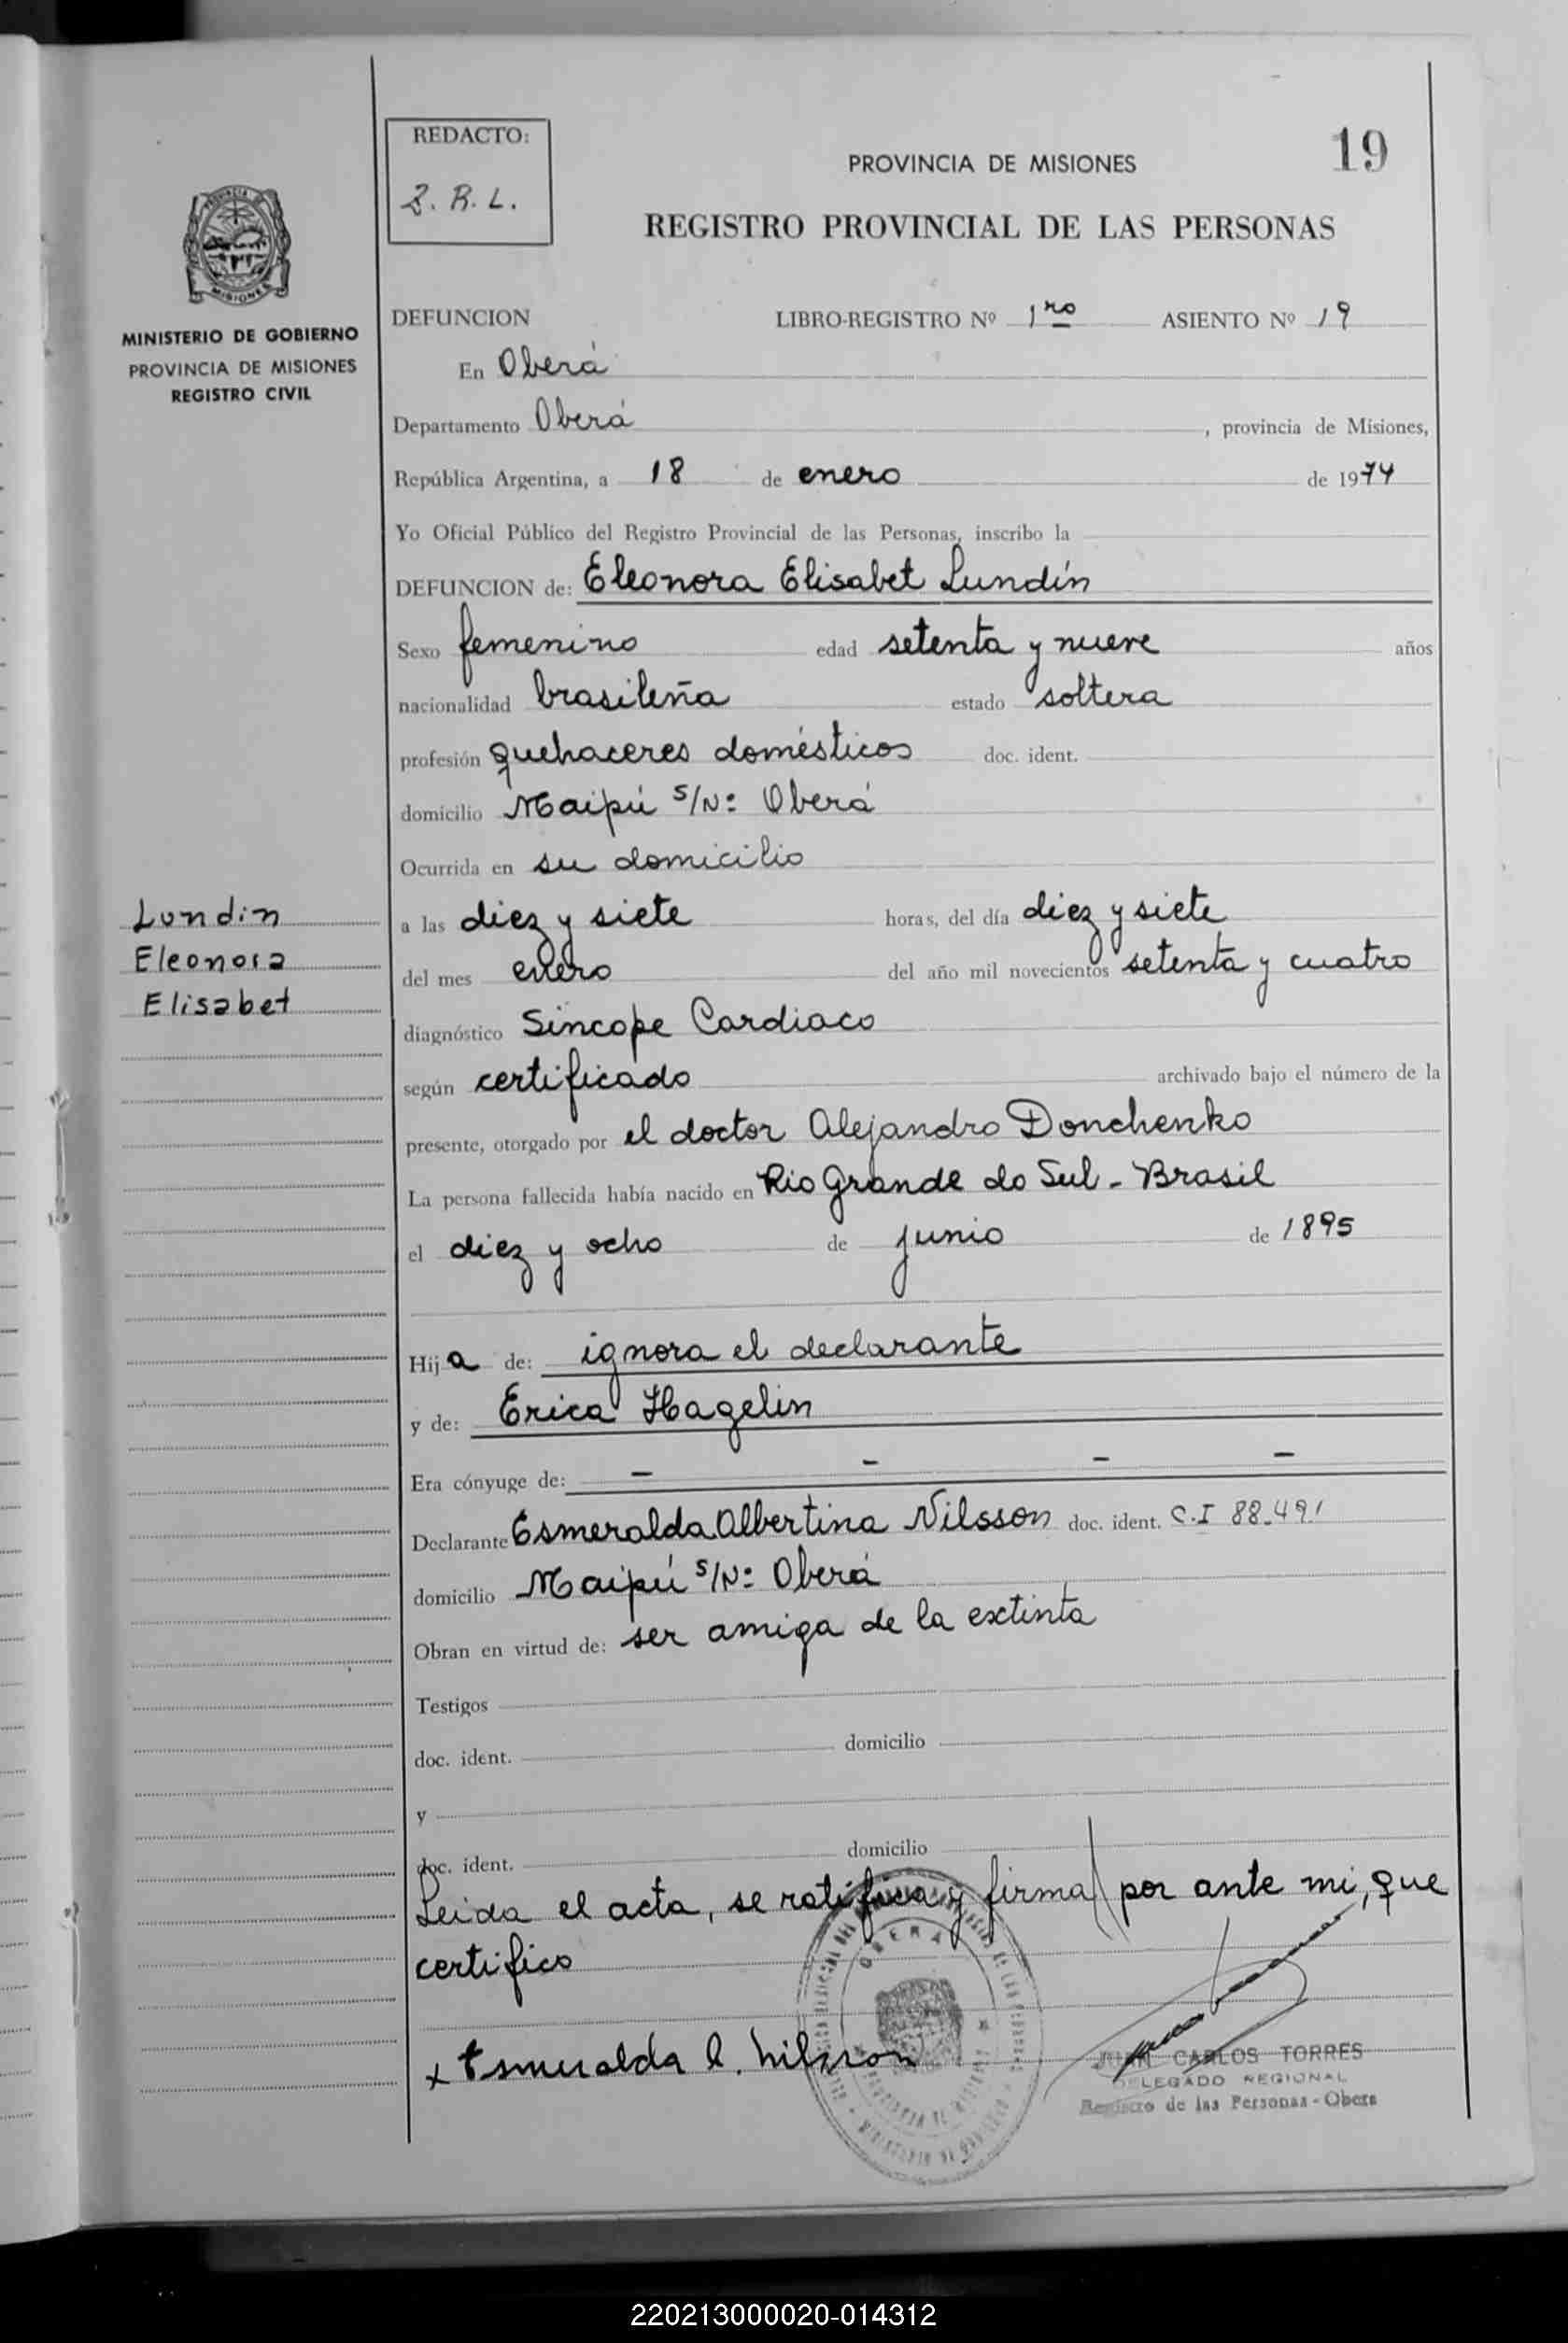 REDACTO:
Z. R. L.
19
PROVINCIA DE MISIONES
REGISTRO PROVINCIAL DE LAS PERSONAS
MISIONES
MINISTERIO DE GOBIERNO
PROVINCIA DE MISIONES
REGISTRO CIVIL
DEFUNCION LIBRO-REGISTRO Nº 1ro ASIENTO Nº 19
En Oberá
Departamento Oberá, provincia de Misiones,
República Argentina, a 18 de enero de 1974
Yo Oficial Público del Registro Provincial de las Personas, inscribo la
DEFUNCION de: Eleonora Elisabet Lundín
Sexo femenino edad setenta y nueve años
nacionalidad brasileña estado soltera
profesión quehaceres domésticos doc. ident.
domicilio Maipú s/Nº Oberá
Ocurrida en su domicilio
Lundin
Eleonora
Elisabet
a las diez y siete horas, del día diez y siete
del mes enero del año mil novecientos setenta y cuatro
diagnóstico Síncope Cardiaco
según certificado archivado bajo el número de la
presente, otorgado por el doctor Alejandro Donchenko
La persona fallecida había nacido en Rio Grande do Sul - Brasil
el diez y ocho de junio de 1895
Hija de: ignora el declarante
y de: Erica Hagelin
Era cónyuge de: - - - -
Declarante Esmeralda Albertina Nilsson doc. ident. C.I 88.491
domicilio Maipú s/Nº Oberá
Obran en virtud de: ser amiga de la extinta
Testigos
doc. ident. domicilio
y
doc. ident. domicilio
Leida el acta, se ratifica y firma por ante mi, que
certifico
OBERA
x Esmeralda A. Nilsson
JUAN CARLOS TORRES
DELEGADO REGIONAL
Registro de las Personas - Obera
220213000020-014312